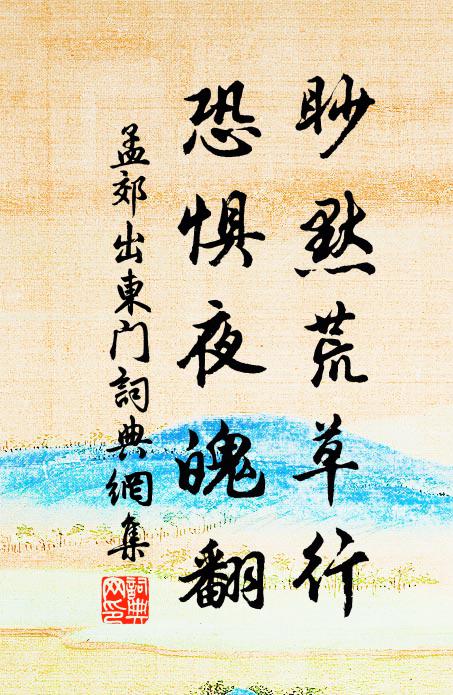 眇默荒草行
恐惧夜魄翻
孟郊出東门詞典網集
詞典